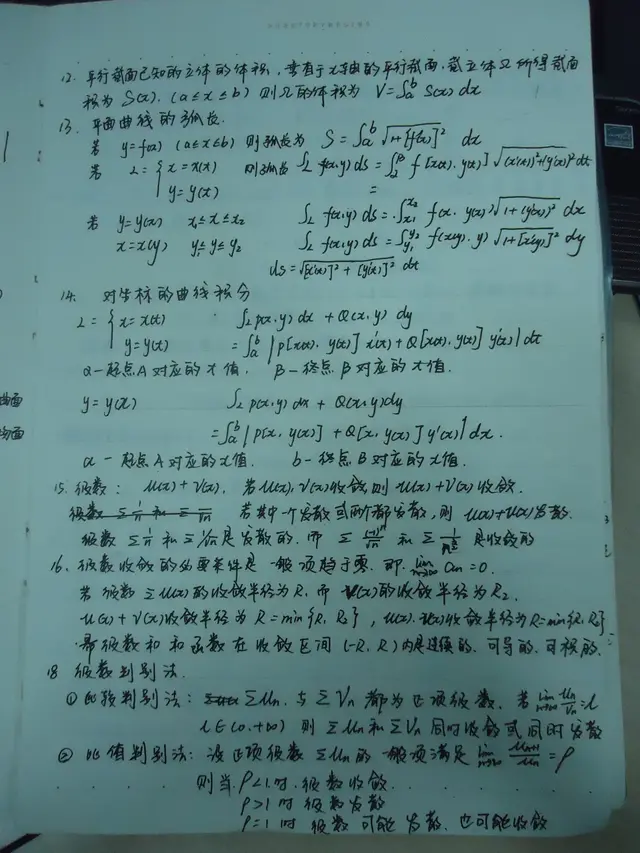 12. 平行截面已知的立体的体积,垂直于x轴的平行截面,截立体Ω所得截面
积为 S(x), (a≤x≤b) 则Ω的体积为 V=∫_a^b S(x) dx
13. 平面曲线的弧长.
若 y=f(x) (a≤x≤b) 则弧长为 S=∫_a^b √(1+[f'(x)]²) dx
若 L={x=x(t) 则弧长 ∫_L f(x,y) ds = ∫_α^β f[x(t), y(t)] √((x'(t))²+(y'(t))²) dt
y=y(t) =
若 y=y(x) x₁≤x≤x₂ ∫_L f(x,y) ds = ∫_{x₁}^{x₂} f(x, y(x)) √(1+(y'(x))²) dx
x=x(y) y₁≤y≤y₂ ∫_L f(x,y) ds = ∫_{y₁}^{y₂} f(x(y), y) √(1+[x'(y)]²) dy
ds=√([x'(t)]²+[y'(t)]²) dt
14. 对坐标的曲线积分
L={x=x(t) ∫_L p(x,y) dx + Q(x,y) dy
y=y(t) =∫_a^b |p[x(t), y(t)] x'(t)+Q[x(t), y(t)] y'(t)| dt
α-起点A对应的x值. β-终点B对应的x值.
y=y(x) ∫_L p(x,y) dx + Q(x,y)dy
=∫_a^b |p[x, y(x)] + Q[x, y(x)] y'(x)| dx.
a-起点A对应的x值. b-终点B对应的x值.
15. 级数: u(x)+v(x), 若u(x), v(x)收敛,则u(x)+v(x)收敛.
若其中一个发散或两个都发散,则 u(x)+v(x)发散.
级数 Σ1/n 和 Σ1/√n是发散的. 而 Σ 和 Σ 是收敛的
16. 级数收敛的必要条件是一般项趋于零. 即 lim_{n→∞} an=0.
若级数 Σu(x)的收敛半径为R, 而 v(x)的收敛半径为R₂.
u(x)+v(x)收敛半径为 R=min{R₁, R₂}, u(x)·v(x)收敛半径为R=min{R₁, R₂}
幂级数和和函数在收敛区间(-R, R)内是连续的.可导的.可积的.
18 级数判别法.
①比较判别法: ΣUn 与ΣVn 都为正项级数. 若lim_{n→∞} Un/Vn=l
l∈(0,+∞) 则 ΣUn和ΣVn同时收敛或同时发散
②比值判别法:设正项级数ΣUn的一般项满足 lim_{n→∞} Un+1/Un=ρ
则当 ρ<1时.级数收敛.
ρ>1时级数发散
ρ=1时级数可能发散.也可能收敛